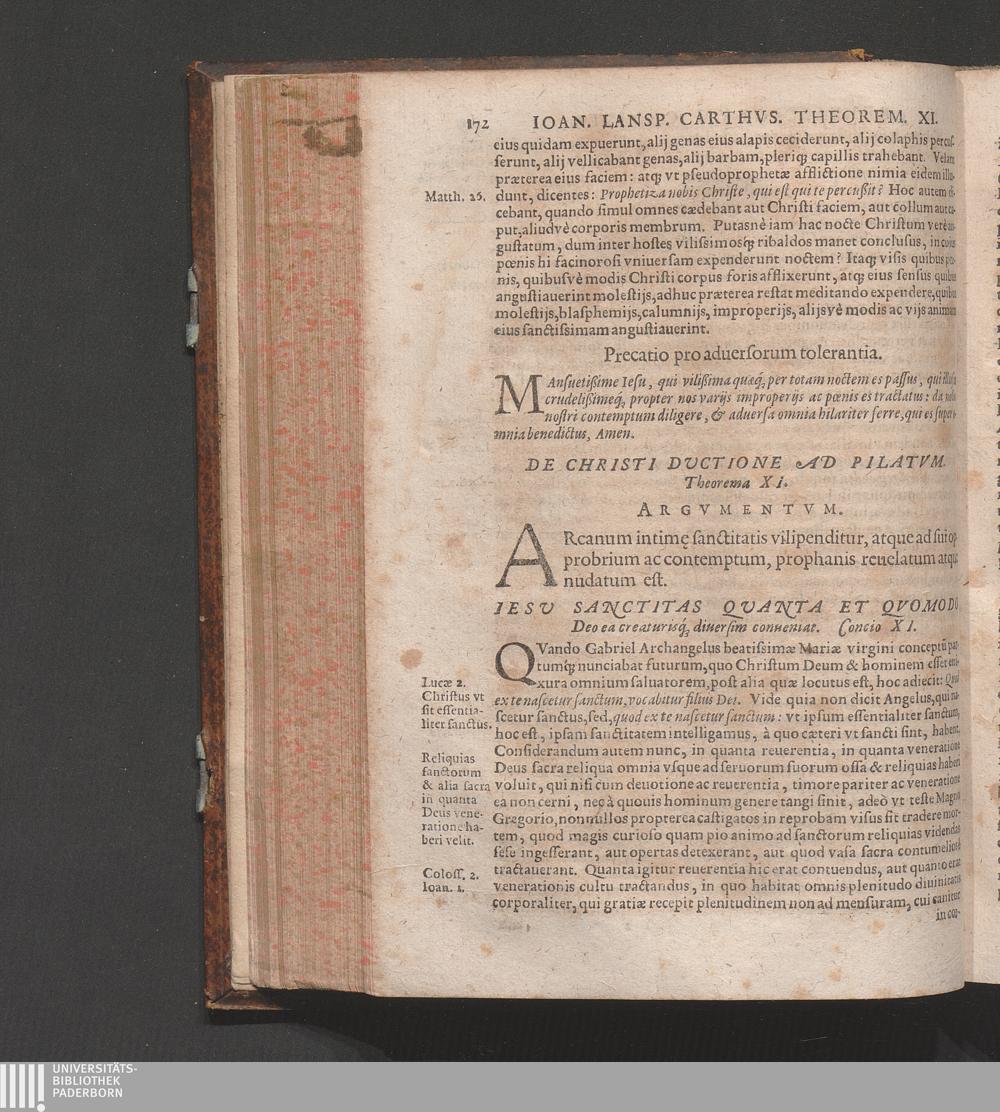 172 IOAN. LANSP. CARTHVS. THEOREM. XI.
eius quidam expuerunt, alij genas eius alapis ceciderunt, alij colaphis percuſ-
ferunt, alij vellicabant genas, alij barbam, pleriq; capillis trahebant. Velam
præterea eius faciem: atq; vt pſeudoprophetæ afflictione nimia eidem illu-
Matth. 26.
dunt, dicentes: Prophetiza nobis Chriſte, qui eſt qui te percußit? Hoc autem di-
cebant, quando ſimul omnes cædebant aut Chriſti faciem, aut collum aut ca-
put, aliudvè corporis membrum. Putasnè iam hac nocte Chriſtum verè an-
guſtatum, dum inter hoſtes viliſsimosq́; ribaldos manet concluſus, in cuius
pœnis hi facinoroſi vniuerſam expenderunt noctem? Itaq; viſis quibus pœ-
nis, quibuſvè modis Chriſti corpus foris afflixerunt, atq; eius ſenſus quibus
anguſtiauerint moleſtijs, adhuc præterea reſtat meditando expendere, quibus
moleſtijs, blaſphemijs, calumnijs, improperijs, alijsvè modis ac vijs animam
eius ſanctiſsimam anguſtiauerint.
Precatio pro aduerſorum tolerantia.
MAnſuetißime Ieſu, qui vilißima quæq́; per totam noctem es paſſus, qui illuſus
crudelißimeq́; propter nos varijs improperijs ac pœnis es tractatus: da nobis
noſtri contemptum diligere, & aduerſa omnia hilariter ferre, qui es ſuper o-
mnia benedictus, Amen.
DE CHRISTI DVCTIONE AD PILATVM.
Theorema XI.
ARGVMENTVM.
ARcanum intimę ſanctitatis vilipenditur, atque ad ſui op
probrium ac contemptum, prophanis reuelatum atque
nudatum eſt.
IESV SANCTITAS QVANTA ET QVOMODO
Deo ea creaturisq́; diuerſim conueniat. Concio XI.
QVando Gabriel Archangelus beatiſsimæ Mariæ virgini conceptũ par-
tumq́; nunciabat futurum, quo Chriſtum Deum & hominem eſſet eni-
xura omnium ſaluatorem, poſt alia quæ locutus eſt, hoc adiecit: Quod
Lucæ 2.
Chriſtus vt
ſit eſſentia-
liter ſanctus.
ex te naſcetur ſanctum, vocabitur filius Dei. Vide quia non dicit Angelus, qui na-
ſcetur ſanctus, ſed, quod ex te naſcetur ſanctum: vt ipſum eſſentialiter ſanctum,
hoc eſt, ipſam ſanctitatem intelligamus, à quo cæteri vt ſancti ſint, habent.
Conſiderandum autem nunc, in quanta reuerentia, in quanta veneratione
Reliquias
ſanctorum
& alia ſacra
in quanta
Deus vene-
ratione ha-
beri velit.
Deus ſacra reliqua omnia vſque ad ſeruorum ſuorum oſſa & reliquias haberi
voluit, qui niſi cum deuotione ac reuerentia, timore pariter ac veneratione
ea non cerni, nec à quouis hominum genere tangi ſinit, adeò vt teſte Magno
Gregorio, nonnullos propterea caſtigatos in reprobam viſus ſit tradere mor-
tem, quod magis curioſo quam pio animo ad ſanctorum reliquias videndas
ſeſe ingeſſerant, aut opertas detexerant, aut quod vaſa ſacra contumelioſè
tractauerant. Quanta igitur reuerentia hic erat contuendus, aut quanto erat
Coloſſ. 2.
Ioan. 1.
venerationis cultu tractandus, in quo habitat omnis plenitudo diuinitatis
corporaliter, qui gratiæ recepit plenitudinem non ad menſuram, cui canitur
in cor-
UNIVERSITÄTS-
BIBLIOTHEK
PADERBORN